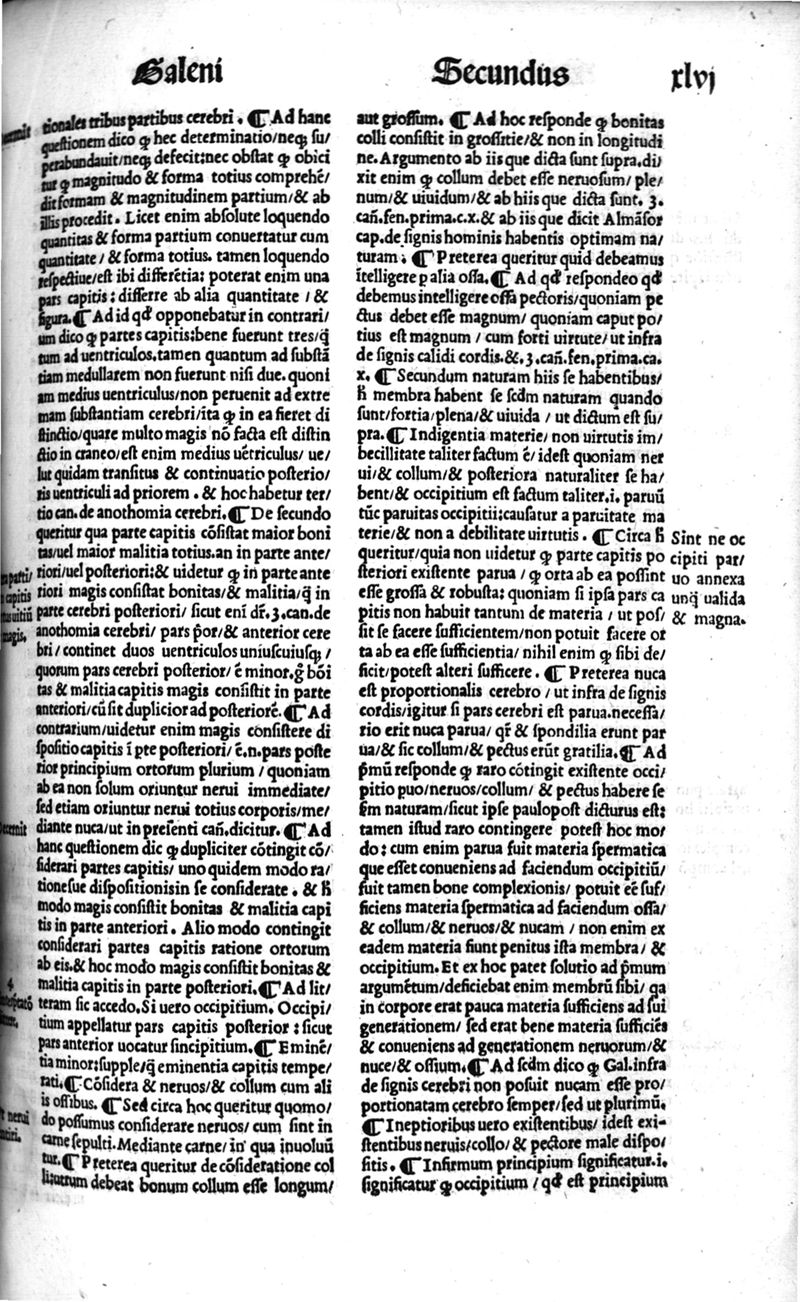 Galeni
Secundus
xlvj
tionales tribus partibus cerebri. ¶ Ad hanc
questionem dico ꝙ hec determinatio/neqꝫ su/
perabundauit/neqꝫ defecit:nec obstat ꝙ obici
tur ꝙ magnitudo & forma totius comprehē/
dit formam & magnitudinem partium/& ab
illis procedit. Licet enim absolute loquendo
quantitas & forma partium conuertatur cum
quantitate / & forma totius. tamen loquendo
respectiue/est ibi differētia: poterat enim una
pars capitis: differre ab alia quantitate / &
figura. ¶ Ad id qd̓ opponebatur in contrari/
um dico ꝙ partes capitis:bene fuerunt tres/q̄
tum ad uentriculos, tamen quantum ad substā
tiam medullarem non fuerunt nisi due. quoni
am medius uentriculus/non peruenit ad extre
mam substantiam cerebri/ita ꝙ in ea fieret di
stinctio/quare multo magis nō facta est distin
ctio in craneo/est enim medius uētriculus/ ue/
lut quidam transitus & continuatio posterio/
ris uentriculi ad priorem . & hoc habetur ter/
tio can. de anothomia cerebri. ¶ De secundo
queritur qua parte capitis cōsistat maior boni
tas/uel maior malitia totius. an in parte ante/
riori/uel posteriori:& uidetur ꝙ in parte ante
riori magis consistat bonitas/& malitia/q̄ in
parte cerebri posteriori/ sicut eni dr̄. 3. can. de
anothomia cerebri/ pars p̄or/& anterior cere
bri/ continet duos uentriculos uniuscuiusqꝫ/
quorum pars cerebri posterior/ ē minor. g̊ bōi
tas & malitia capitis magis consistit in parte
anteriori/cū sit duplicior ad posteriorē. ¶ Ad
contrarium/uidetur enim magis consistere di
spositio capitis ī pte posteriori/ ē.n. pars poste
rior principium ortorum plurium / quoniam
ab ea non solum oriuntur nerui immediate/
sed etiam oriuntur nerui totius corporis/me/
diante nuca/ut in presenti cañ. dicitur. ¶ Ad
hanc questionem dic ꝙ dupliciter cōtingit cō/
siderari partes capitis/ uno quidem modo ra/
tione sue dispositionis in se considerate . & h̄
modo magis consistit bonitas & malitia capi
tis in parte anteriori. Alio modo contingit
considerari partes capitis ratione ortorum
ab eis. & hoc modo magis consistit bonitas &
malitia capitis in parte posteriori. ¶ Ad lit/
teram sic accedo. Si uero occipitium. Occipi/
tium appellatur pars capitis posterior : sicut
pars anterior uocatur sincipitium. ¶ Eminē/
tia minor: supple/q̄ eminentia capitis tempe/
rati. ¶ Cōsidera & neruos/& collum cum ali
is ossibus. ¶ Sed circa hoc queritur quomo/
do possumus considerare neruos/ cum sint in
carne sepulti. Mediante carne/ in qua inuoluū
tur. ¶ Preterea queritur de cōsideratione col
li:utrum debeat bonum collum esse longum/
aut grossum. ¶ Ad hoc responde ꝙ bonitas
colli consistit in grossitie/& non in longitudi
ne. Argumento ab iis que dicta sunt supra. di/
xit enim ꝙ collum debet esse neruosum/ ple/
num/& uiuidum/& ab hiis que dicta sunt. 3.
cañ. fen. prima. c. x. & ab iis que dicit Almāsor
cap. de signis hominis habentis optimam na/
turam. ¶ Preterea queritur quid debeamus
ītelligere p alia ossa. ¶ Ad qd̓ respondeo qd̓
debemus intelligere ossa pectoris/quoniam pe
ctus debet esse magnum/ quoniam caput po/
tius est magnum / cum forti uirtute/ ut infra
de signis calidi cordis. &. 3. cañ. fen. prima. ca.
x. ¶ Secundum naturam hiis se habentibus/
h̄ membra habent se scd̓m naturam quando
sunt/fortia/plena/& uiuida / ut dictum est su/
pra. ¶ Indigentia materie/ non uirtutis im/
becillitate taliter factum ē/ idest quoniam ner
ui/& collum/& posteriora naturaliter se ha/
bent/& occipitium est factum taliter. i. paruū
tūc paruitas occipitii: causatur a paruitate ma
terie/& non a debilitate uirtutis . ¶ Circa h̄
queritur/quia non uidetur ꝙ parte capitis po
steriori existente parua / ꝙ orta ab ea possint
esse grossa & robusta: quoniam si ipsa pars ca
pitis non habuit tantum de materia / ut pos/
sit se facere sufficientem/non potuit facere or
ta ab ea esse sufficientia/ nihil enim ꝙ sibi de/
ficit/potest alteri sufficere . ¶ Preterea nuca
est proportionalis cerebro / ut infra de signis
cordis/igitur si pars cerebri est parua. necessa/
rio erit nuca parua/ qr̄ & spondilia erunt par
ua/& sic collum/& pectus erūt gratilia. ¶ Ad
p̄mū responde ꝙ raro cōtingit existente occi/
pitio puo/neruos/collum/ & pectus habere se
s̄m naturam/sicut ipse paulopost dicturus est:
tamen istud raro contingere potest hoc mo/
do : cum enim parua fuit materia spermatica
que esset conueniens ad faciendum occipitiū/
fuit tamen bone complexionis/ potuit eē suf/
ficiens materia spermatica ad faciendum ossa/
& collum/& neruos/& nucam / non enim ex
eadem materia fiunt penitus ista membra/ &
occipitium. Et ex hoc patet solutio ad p̄mum
argumētum/deficiebat enim membrū sibi/ qa
in corpore erat pauca materia sufficiens ad sui
generationem/ sed erat bene materia sufficiēs
& conueniens ad generationem neruorum/&
nuce/& ossium. ¶ Ad scd̓m dico ꝙ Gal. infra
de signis cerebri non posuit nucam esse pro/
portionatam cerebro semper/sed ut plurimū.
¶ Ineptioribus uero existentibus/ idest exi-
stentibus neruis/collo/& pectore male dispo/
sitis. ¶ Infirmum principium significatur. i.
significatur ꝙ occipitium / qd̓ est principium
Sint ne oc
cipiti par/
uo annexa
unq̄ ualida
& magna.